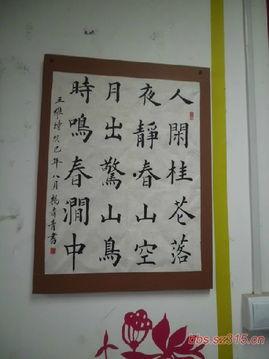 人閑桂花落
夜靜春山空
月出驚山鳥
時鳴春澗中
王維詩癸巳年八月楊青書
bbs.sz315.cn